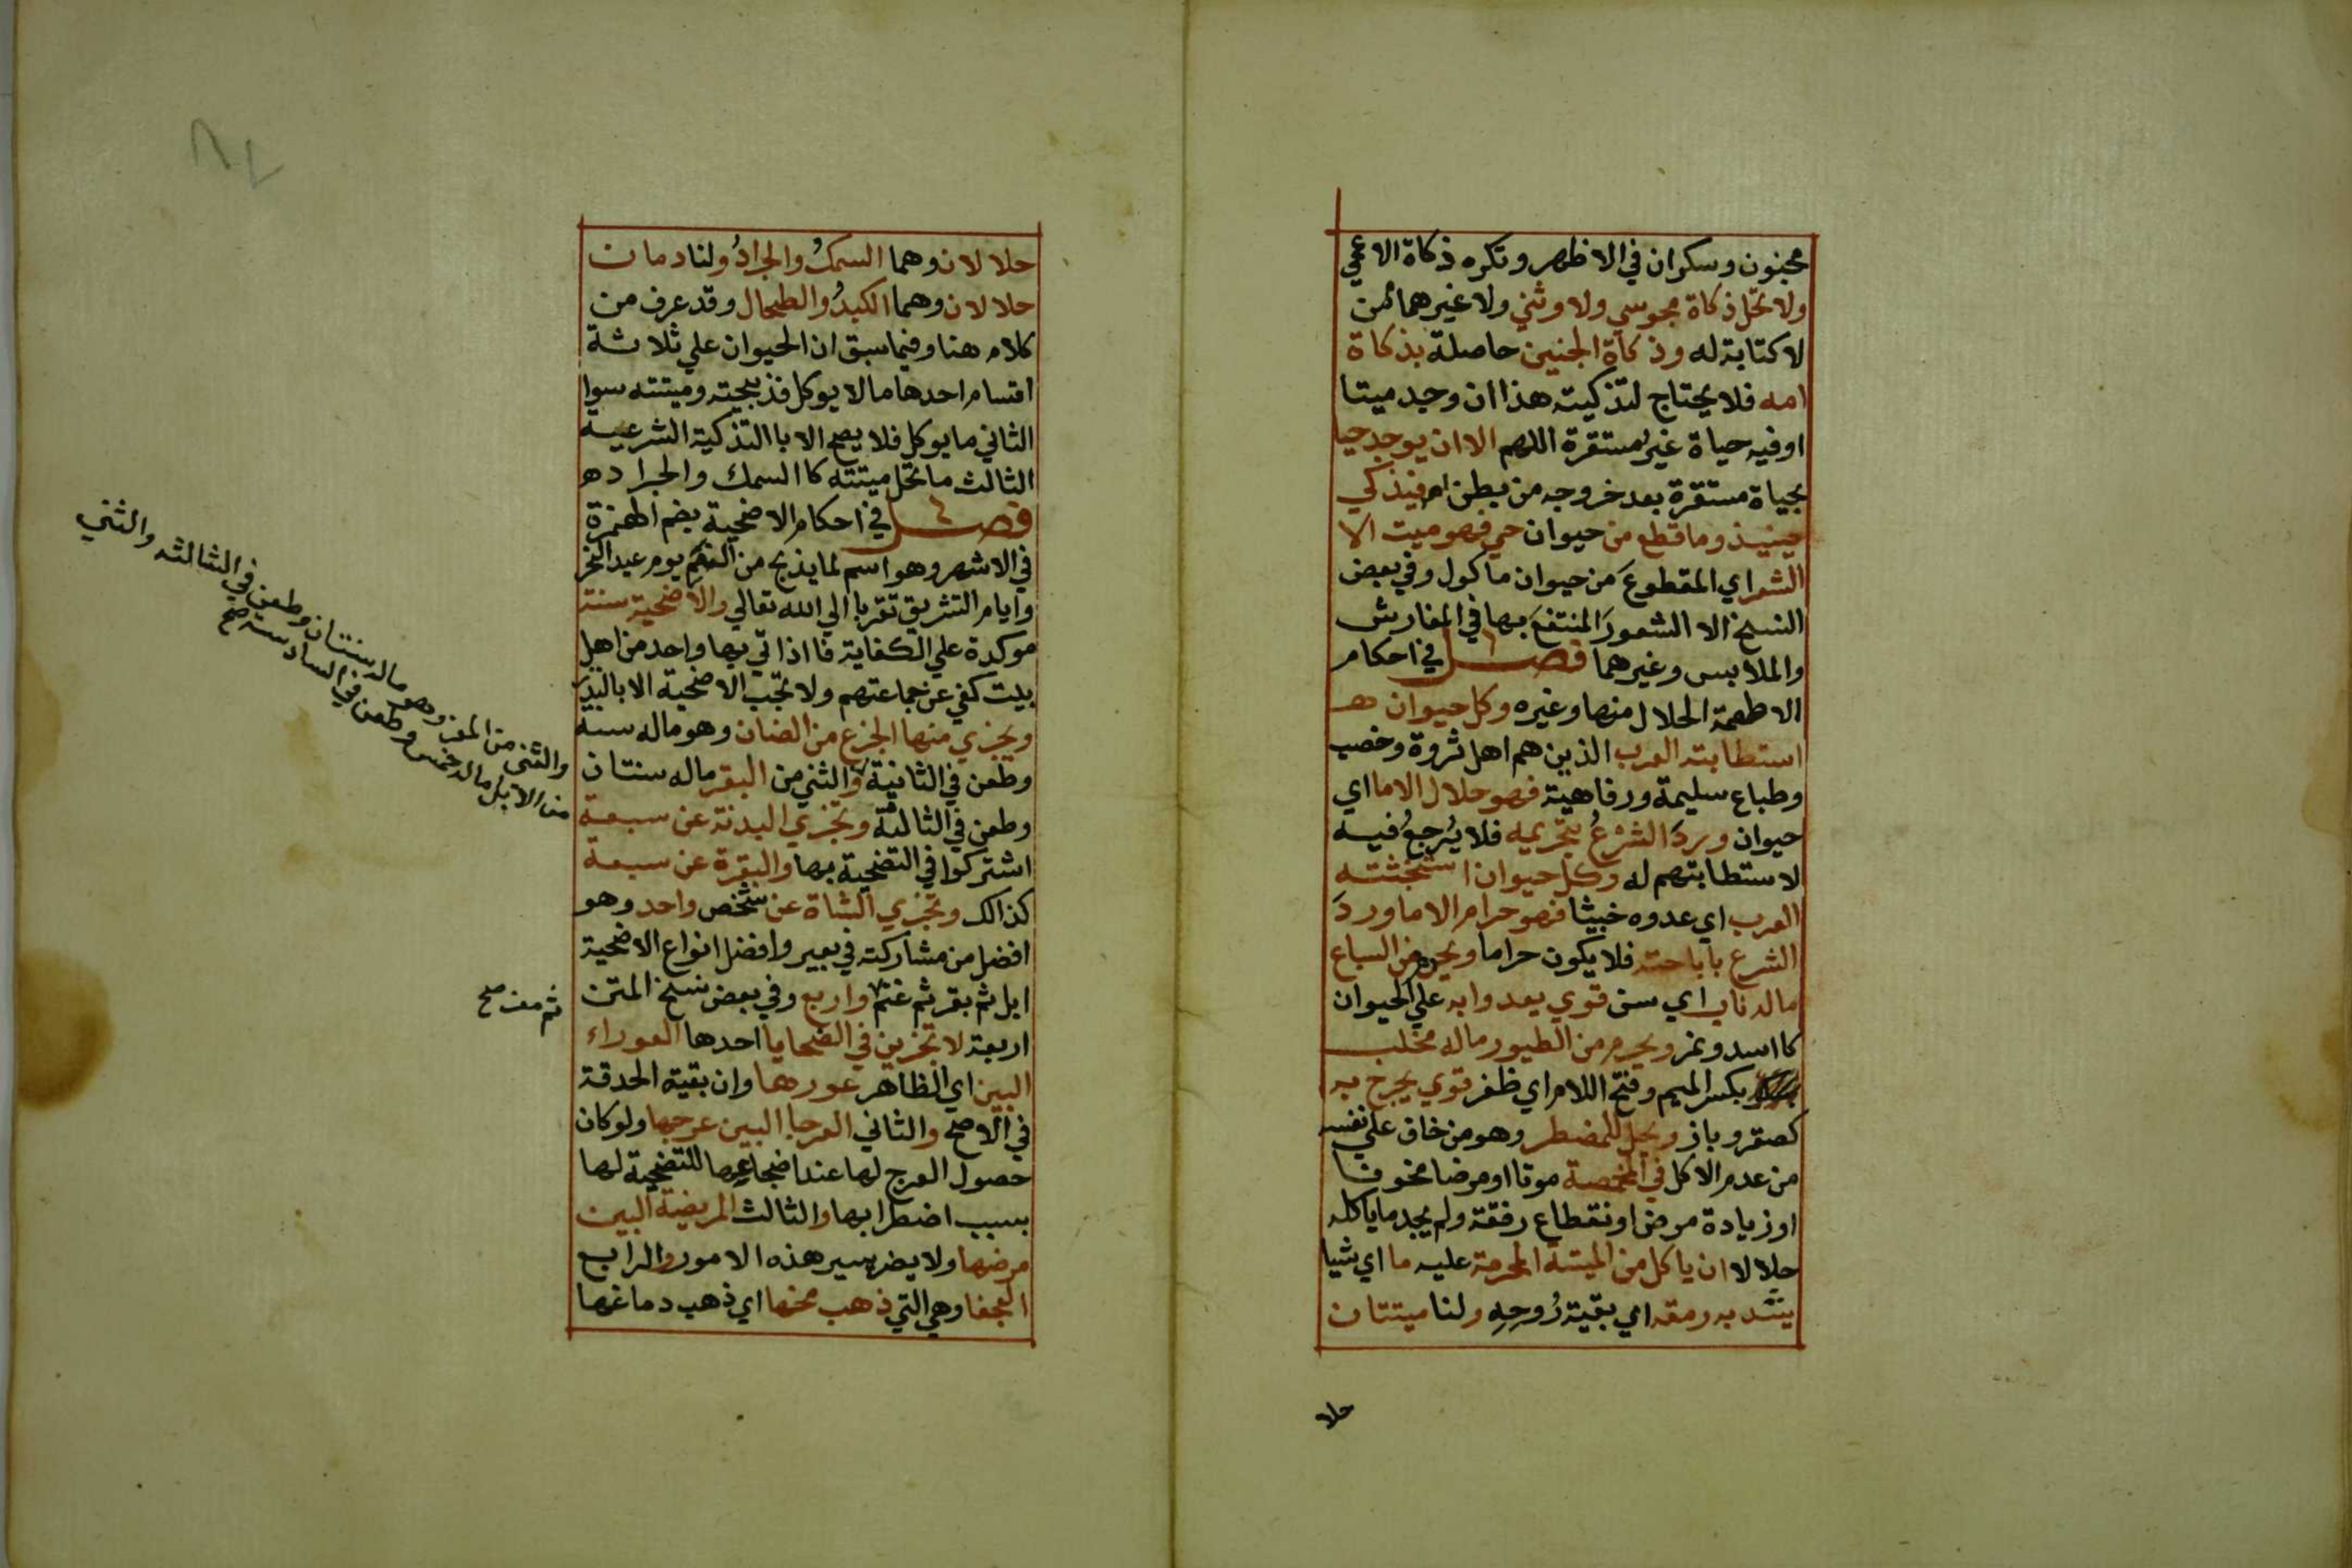 مجنون وسكران في الاظهر وتكره ذكاة الاعمي
ولا تحل ذكاة مجوسي ولا وثني ولا غيرهما ممن
لا كتابة له وذكاة الجنين حاصلة بذكاة
امه فلا يحتاج لتذكيته هذا ان وجد ميتا
او فيه حياة غير مستقرة اللهم الا ان يوجد حيا
بحياة مستقرة بعد خروجه من بطن امه فيذكي
حينيذ وما قطع من حيوان حي فهو ميت الا
الشعر اي المقطوع من حيوان ماكول وفي بعض
النسخ الا الشعور المنتفع بها في المفارش
والملابس وغيرهما فصل في احكام
الاطعمة الحلال منها وغيره وكل حيوان
استطابته العرب الذين هم اهل ثروة وخصب
وطباع سليمة ورفاهية فهو حلال الا ما اي
حيوان ورد الشرع بتحريمه فلا يرجع فيه
لاستطابتهم له وكل حيوان استخبثته
العرب اي عدوه خبيثا فهو حرام الا ما ورد
الشرع باباحته فلا يكون حراما ويحرم من السباع
ماله ناب اي سن قوي يعدوا به علي الحيوان
كا اسد ونمر ويحرم من الطيور ماله مخلب
بكسر الميم وفتح اللام اي ظفر قوي يجرح به
كصقر وباز ويحل للمضطر وهو من خاف علي نفسه
من عدم الاكل في المخمصة موتا او مرضا مخوفا
او زيادة مرض او نقطاع رفقة ولم يجد ما ياكله
حلالا ان ياكل من الميتة المحرمة عليه ما اي شيا
يسد به رمقه اي بقية رُوحِهِ ولنا ميتتان
حلا
حلالان وهما السمك والجراد ولنا دمان
حلالان وهما الكبد والطحال وقد عرف من
كلام هنا وفيما سبق ان الحيوان علي ثلاثة
اقسام احدها مالا يوكل فذبيحته وميتته سوا
الثاني ما يوكل فلا يصح الا باالتذكية الشرعية
الثالث ما تحل ميتته كا السمك والجراد ه
فصل في احكام الاضحية بضم الهمزة
في الاشهر وهو اسم لما يذبح من النعم يوم عيد النحر
وايام التشريق تقربا الي الله تعالي والاضحية سنة
موكدة علي الكفاية فااذا اتي بها واحد من اهل
بيت كفي عن جماعتهم ولا تجب الاضحية الا بالنذر
ويجزي منها الجزع من الضان وهو ماله سنة
وطعن في الثانية والثني من البقر ماله سنتان
وطعن في الثالثة وتجزي البدنة عن سبعة
اشتركوا في التضحية بها والبقرة عن سبعة
كذالك وتجزي الشاة عن شخص واحد وهو
افضل من مشاركته في بعير وافضل انواع الاضحية
ابل ثم بقر ثم غنم واربع وفي بعض نسخ المتن
اربعة لا تجزين في الضحايا احدها العوراء
البين اي الظاهر عورها وان بقية الحدقة
في الاصح والثاني العرجا البين عرجها ولو كان
حصول العرج لها عند اضجاعها للتضحية لها
بسبب اضطرابها والثالث المريضة البين
مرضها ولا يضر يسير هذه الامور والرابع
العجفا وهي التي ذهب مخها اي ذهب دماغها
والثني من المعز وهو ماله سنتان وطعن في الثالثه والثني
من الابل ماله خمس وطعن في السادسة صح
ثم معز صح